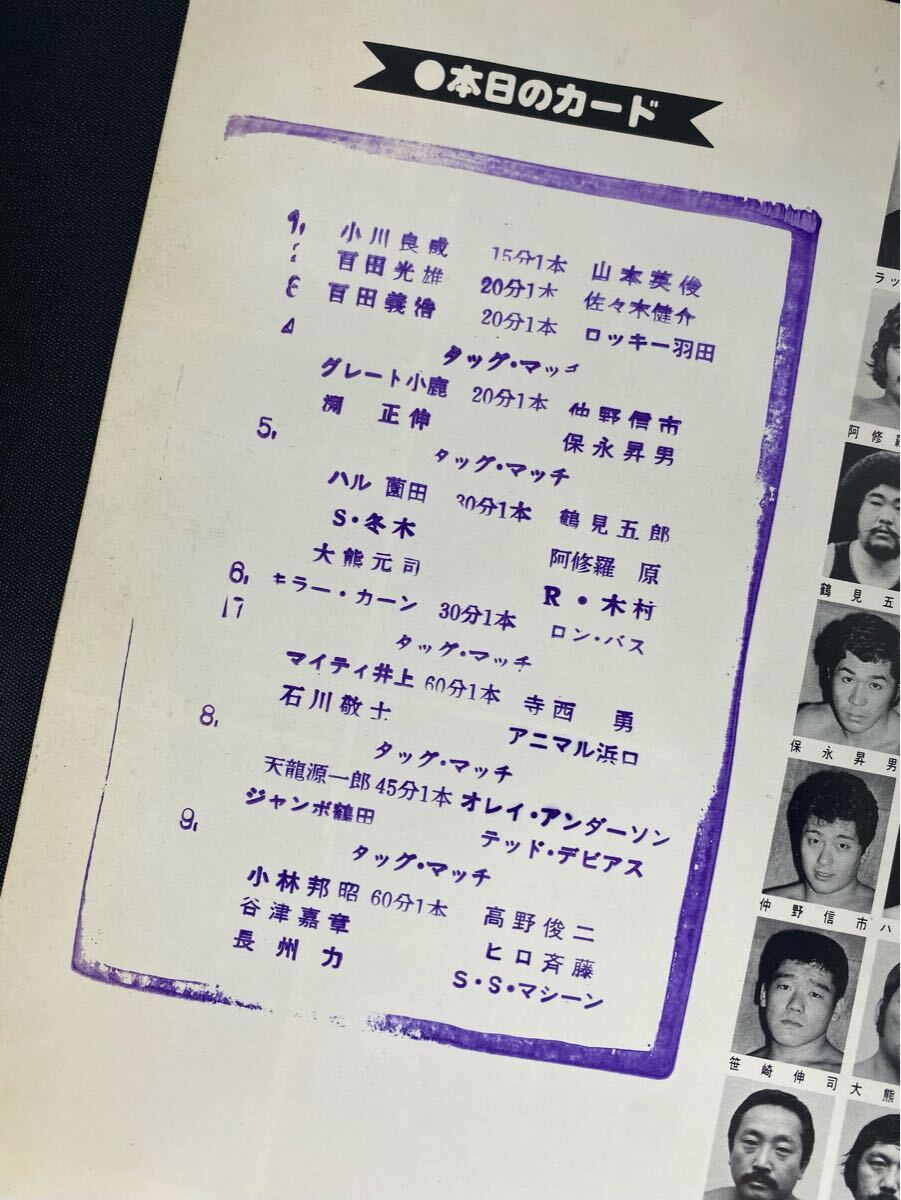 ●本日のカード
1, 小川良成 15分1本 山本英俊
百田光雄 20分1本 佐々木健介
百田義浩 20分1本 ロッキー羽田
4
タッグ・マッチ
グレート小鹿 20分1本 仲野信市
渕 正伸 保永昇男
5,
タッグ・マッチ
ハル薗田 30分1本 鶴見五郎
S・冬木 阿修羅 原
大熊元司 R・木村
6, キラー・カーン 30分1本 ロン・バス
17
タッグ・マッチ
マイティ井上 60分1本 寺西 勇
石川敬士 アニマル浜口
8,
タッグ・マッチ
天龍源一郎 45分1本 オレイ・アンダーソン
ジャンボ鶴田 テッド・デビアス
9,
タッグ・マッチ
小林邦昭 60分1本 高野俊二
谷津嘉章 ヒロ斉藤
長州 力 S・S・マシーン
ラッ
阿修羅
鶴見五
保永昇男
仲野信市 ハ
笹崎伸司 大熊